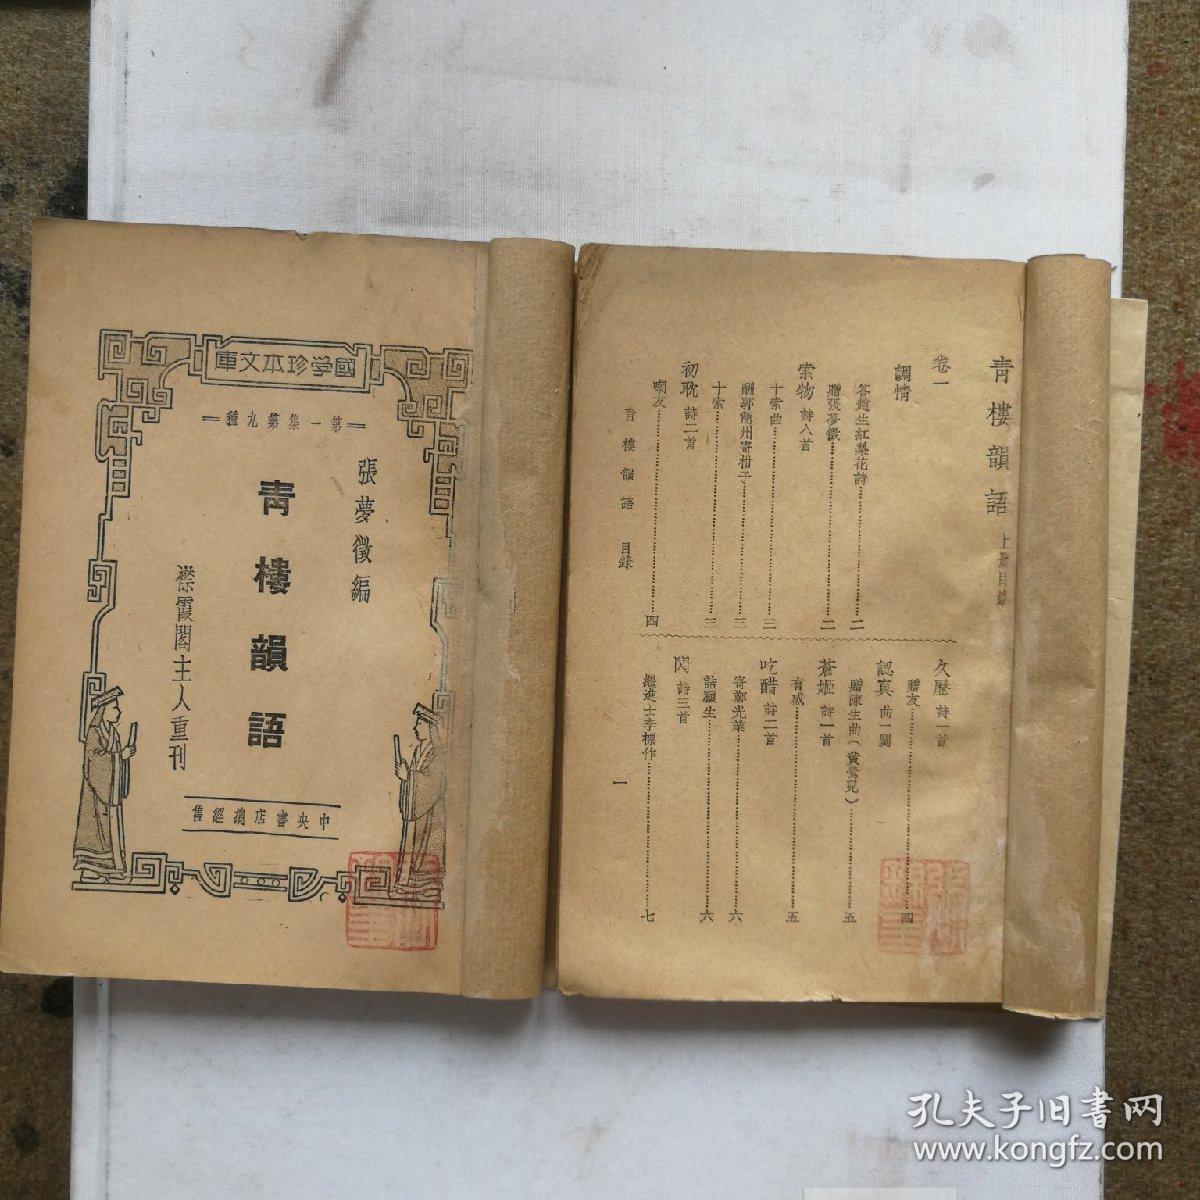 國學珍本文庫
第一集第九種
張夢徵編
青樓韻語
襟霞閣主人重刊
中央書店總經售
青樓韻語 上冊目錄
卷一
調情
答趙生紅梨花詩 二
贈張夢徵 二
索物 詩八首
十索曲 三
酬郭簡州寄柑子 三
十索 三
初耽 詩二首
嘲友 四
久歷 詩一首
贈友 四
認真 曲一闋
贈陳生曲(黃鶯兒) 五
蒼姬 詩一首
有感 五
吃醋 詩二首
寄鄭光業 六
詰顧生 六
閃 詩三首
繼進士李標作 七
青樓韻語 目錄
一
孔夫子旧書网
www.kongfz.com